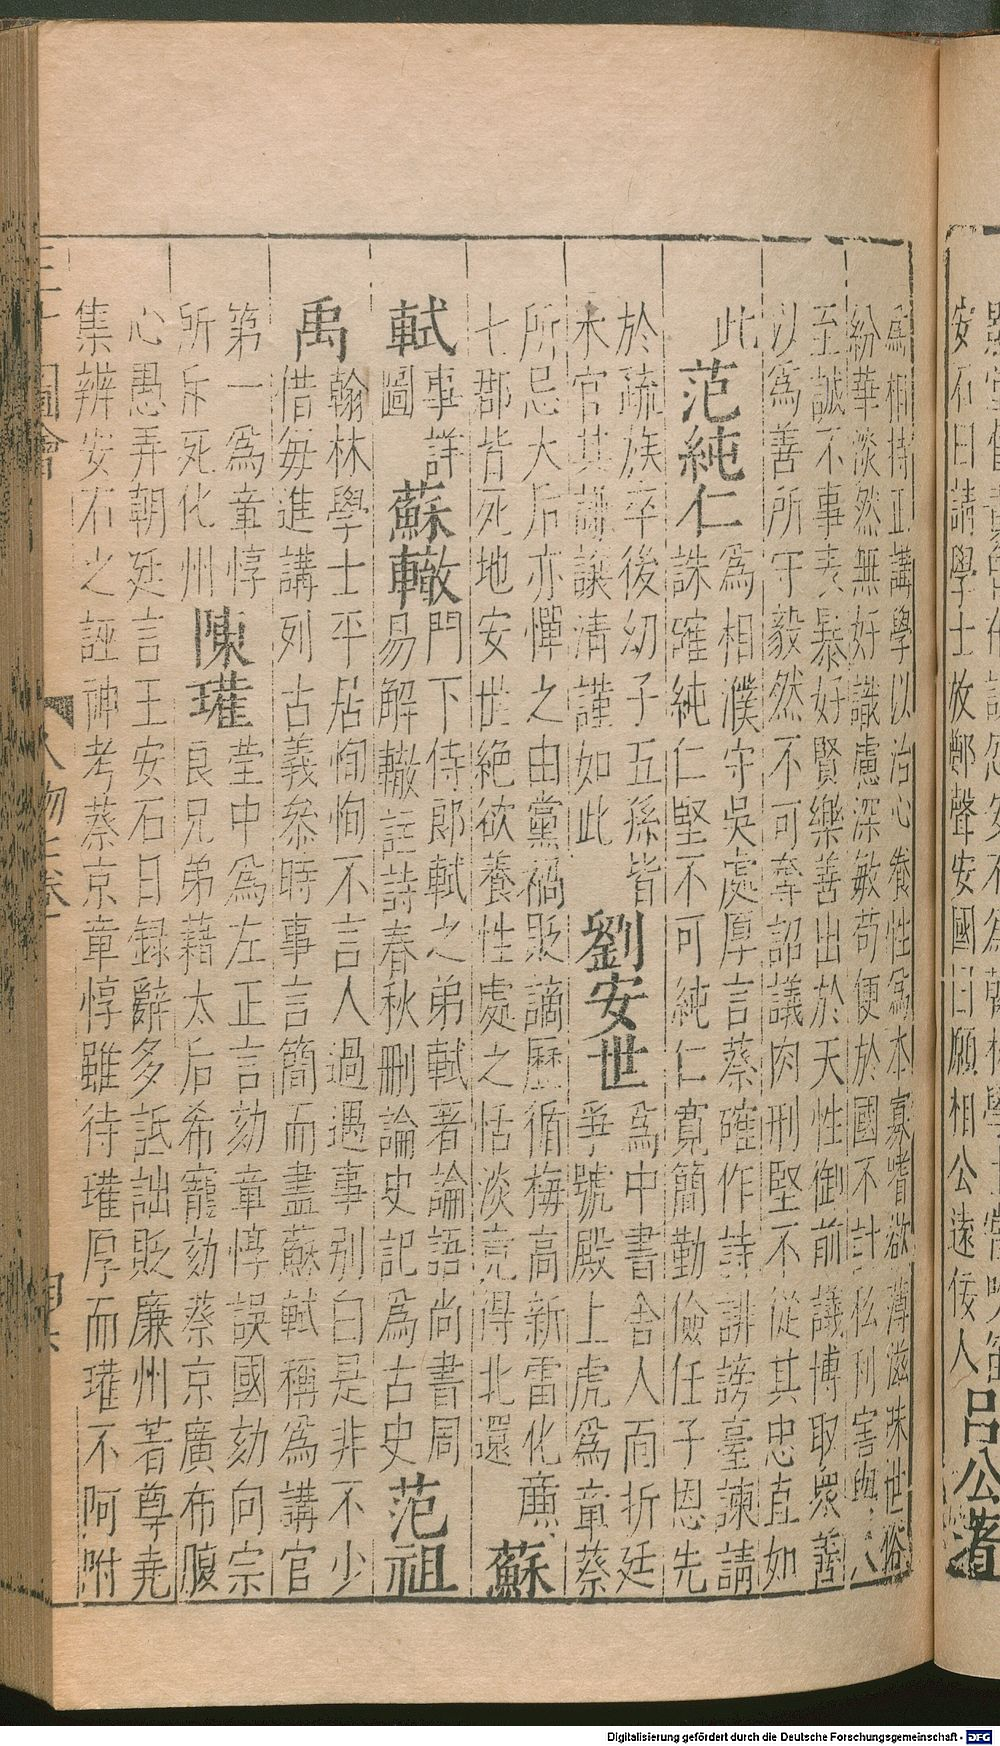 安石曰請學士放鄭聲安國曰願相公遠佞人呂公著
為相持正講學以治心養性為本寡嗜欲薄滋味世俗
紛華淡然無好識慮深敏苟便於國不計私利害與人
至誠不事表暴好賢樂善出於天性御前議博取衆善
以為善所守毅然不可奪詔議肉刑堅不從其忠直如
此
范純仁
為相濮守吳處厚言蔡確作詩誹謗臺諫請
誅確純仁堅不可純仁寬簡勤儉任子恩先
於疏族卒後幼子五孫皆
未官其謙讓清謹如此
劉安世
為中書舍人面折廷
爭號殿上虎為章蔡
所忌大后亦憚之由黨禍貶謫歷循梅高新雷化廉
七郡皆死地安世絕欲養性處之恬淡竟得北還
蘇
軾
事詳
圖
蘇轍
門下侍郎軾之弟軾著論語尚書周
易解轍註詩春秋刪論史記為古史
范祖
禹
翰林學士平居恂恂不言人過遇事別白是非不少
借每進講列古義參時事言簡而盡蘇軾稱為講官
第一為童惇
所斥死化州
陳瓘
瑩中為左正言劾章惇誤國劾向宗
良兄弟藉太后希寵劾蔡京廣布腹
心愚弄朝延言王安石日録辭多詆詘貶廉州著尊堯
集辨安石之誣神考蔡京章惇雖待瓘厚而瓘不阿附
圖會
人物
Digitalisierung gefördert durch die Deutsche Forschungsgemeinschaft - DFG